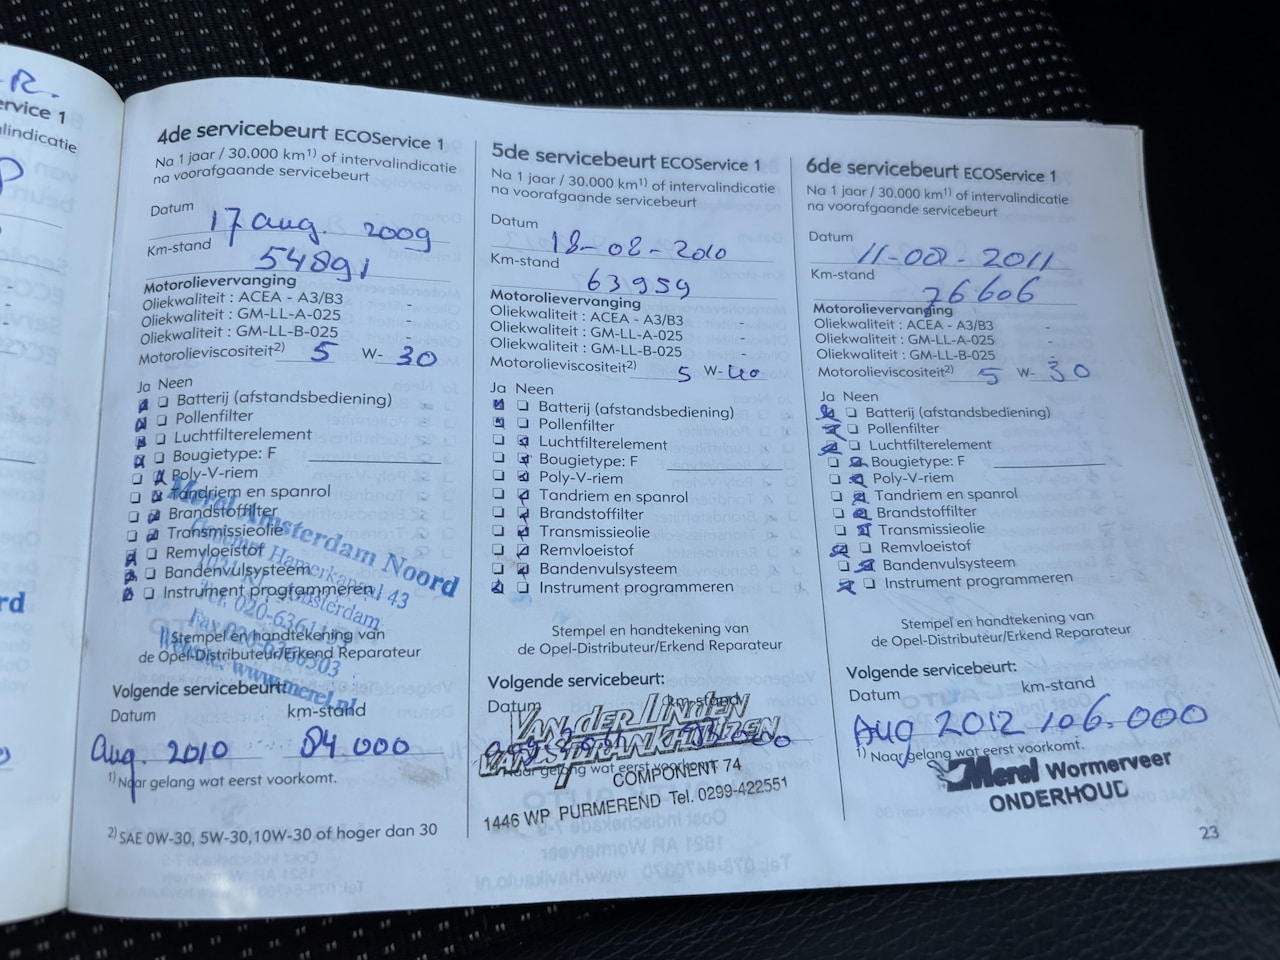 R.
ervice 1
lindicatie
rd
4de servicebeurt ECOService 1
Na 1 jaar / 30.000 km¹⁾ of intervalindicatie
na voorafgaande servicebeurt
Datum 17 aug. 2009
Km-stand 54891
Motorolievervanging
Oliekwaliteit : ACEA - A3/B3 -
Oliekwaliteit : GM-LL-A-025
Oliekwaliteit : GM-LL-B-025 -
Motorolieviscositeit²⁾ 5 W- 30
Ja Neen
Batterij (afstandsbediening)
Pollenfilter
Luchtfilterelement
Bougietype: F
Poly-V-riem
Tandriem en spanrol
Brandstoffilter
Transmissieolie
Remvloeistof
Bandenvulsysteem
Instrument programmeren
Merel Amsterdam Noord
Hamerkanaal 43
Amsterdam
www.merel.nl
Stempel en handtekening van
de Opel-Distributeur/Erkend Reparateur
Volgende servicebeurt:
Datum km-stand
Aug. 2010 84.000
¹⁾ Naar gelang wat eerst voorkomt.
²⁾ SAE 0W-30, 5W-30,10W-30 of hoger dan 30
5de servicebeurt ECOService 1
Na 1 jaar / 30.000 km¹⁾ of intervalindicatie
na voorafgaande servicebeurt
Datum 18-08-2010
Km-stand 63959
Motorolievervanging
Oliekwaliteit : ACEA - A3/B3 -
Oliekwaliteit : GM-LL-A-025
Oliekwaliteit : GM-LL-B-025 -
Motorolieviscositeit²⁾ 5 W- 40
Ja Neen
Batterij (afstandsbediening)
Pollenfilter
Luchtfilterelement
Bougietype: F
Poly-V-riem
Tandriem en spanrol
Brandstoffilter
Transmissieolie
Remvloeistof
Bandenvulsysteem
Instrument programmeren
Stempel en handtekening van
de Opel-Distributeur/Erkend Reparateur
Volgende servicebeurt:
Datum km-stand
VAN DER LINDEN
VAN SPRANKHUIZEN
Naar gelang wat eerst voorkomt.
COMPONENT 74
1446 WP PURMEREND Tel. 0299-422551
6de servicebeurt ECOService 1
Na 1 jaar / 30.000 km¹⁾ of intervalindicatie
na voorafgaande servicebeurt
Datum 11-08-2011
Km-stand 76606
Motorolievervanging
Oliekwaliteit : ACEA - A3/B3 -
Oliekwaliteit : GM-LL-A-025 -
Oliekwaliteit : GM-LL-B-025 -
Motorolieviscositeit²⁾ 5 W- 30
Ja Neen
Batterij (afstandsbediening)
Pollenfilter
Luchtfilterelement
Bougietype: F
Poly-V-riem
Tandriem en spanrol
Brandstoffilter
Transmissieolie
Remvloeistof
Bandenvulsysteem
Instrument programmeren
Stempel en handtekening van
de Opel-Distributeur/Erkend Reparateur
Volgende servicebeurt:
Datum km-stand
Aug 2012 106.000
¹⁾ Naar gelang wat eerst voorkomt.
Merel Wormerveer
ONDERHOUD
23